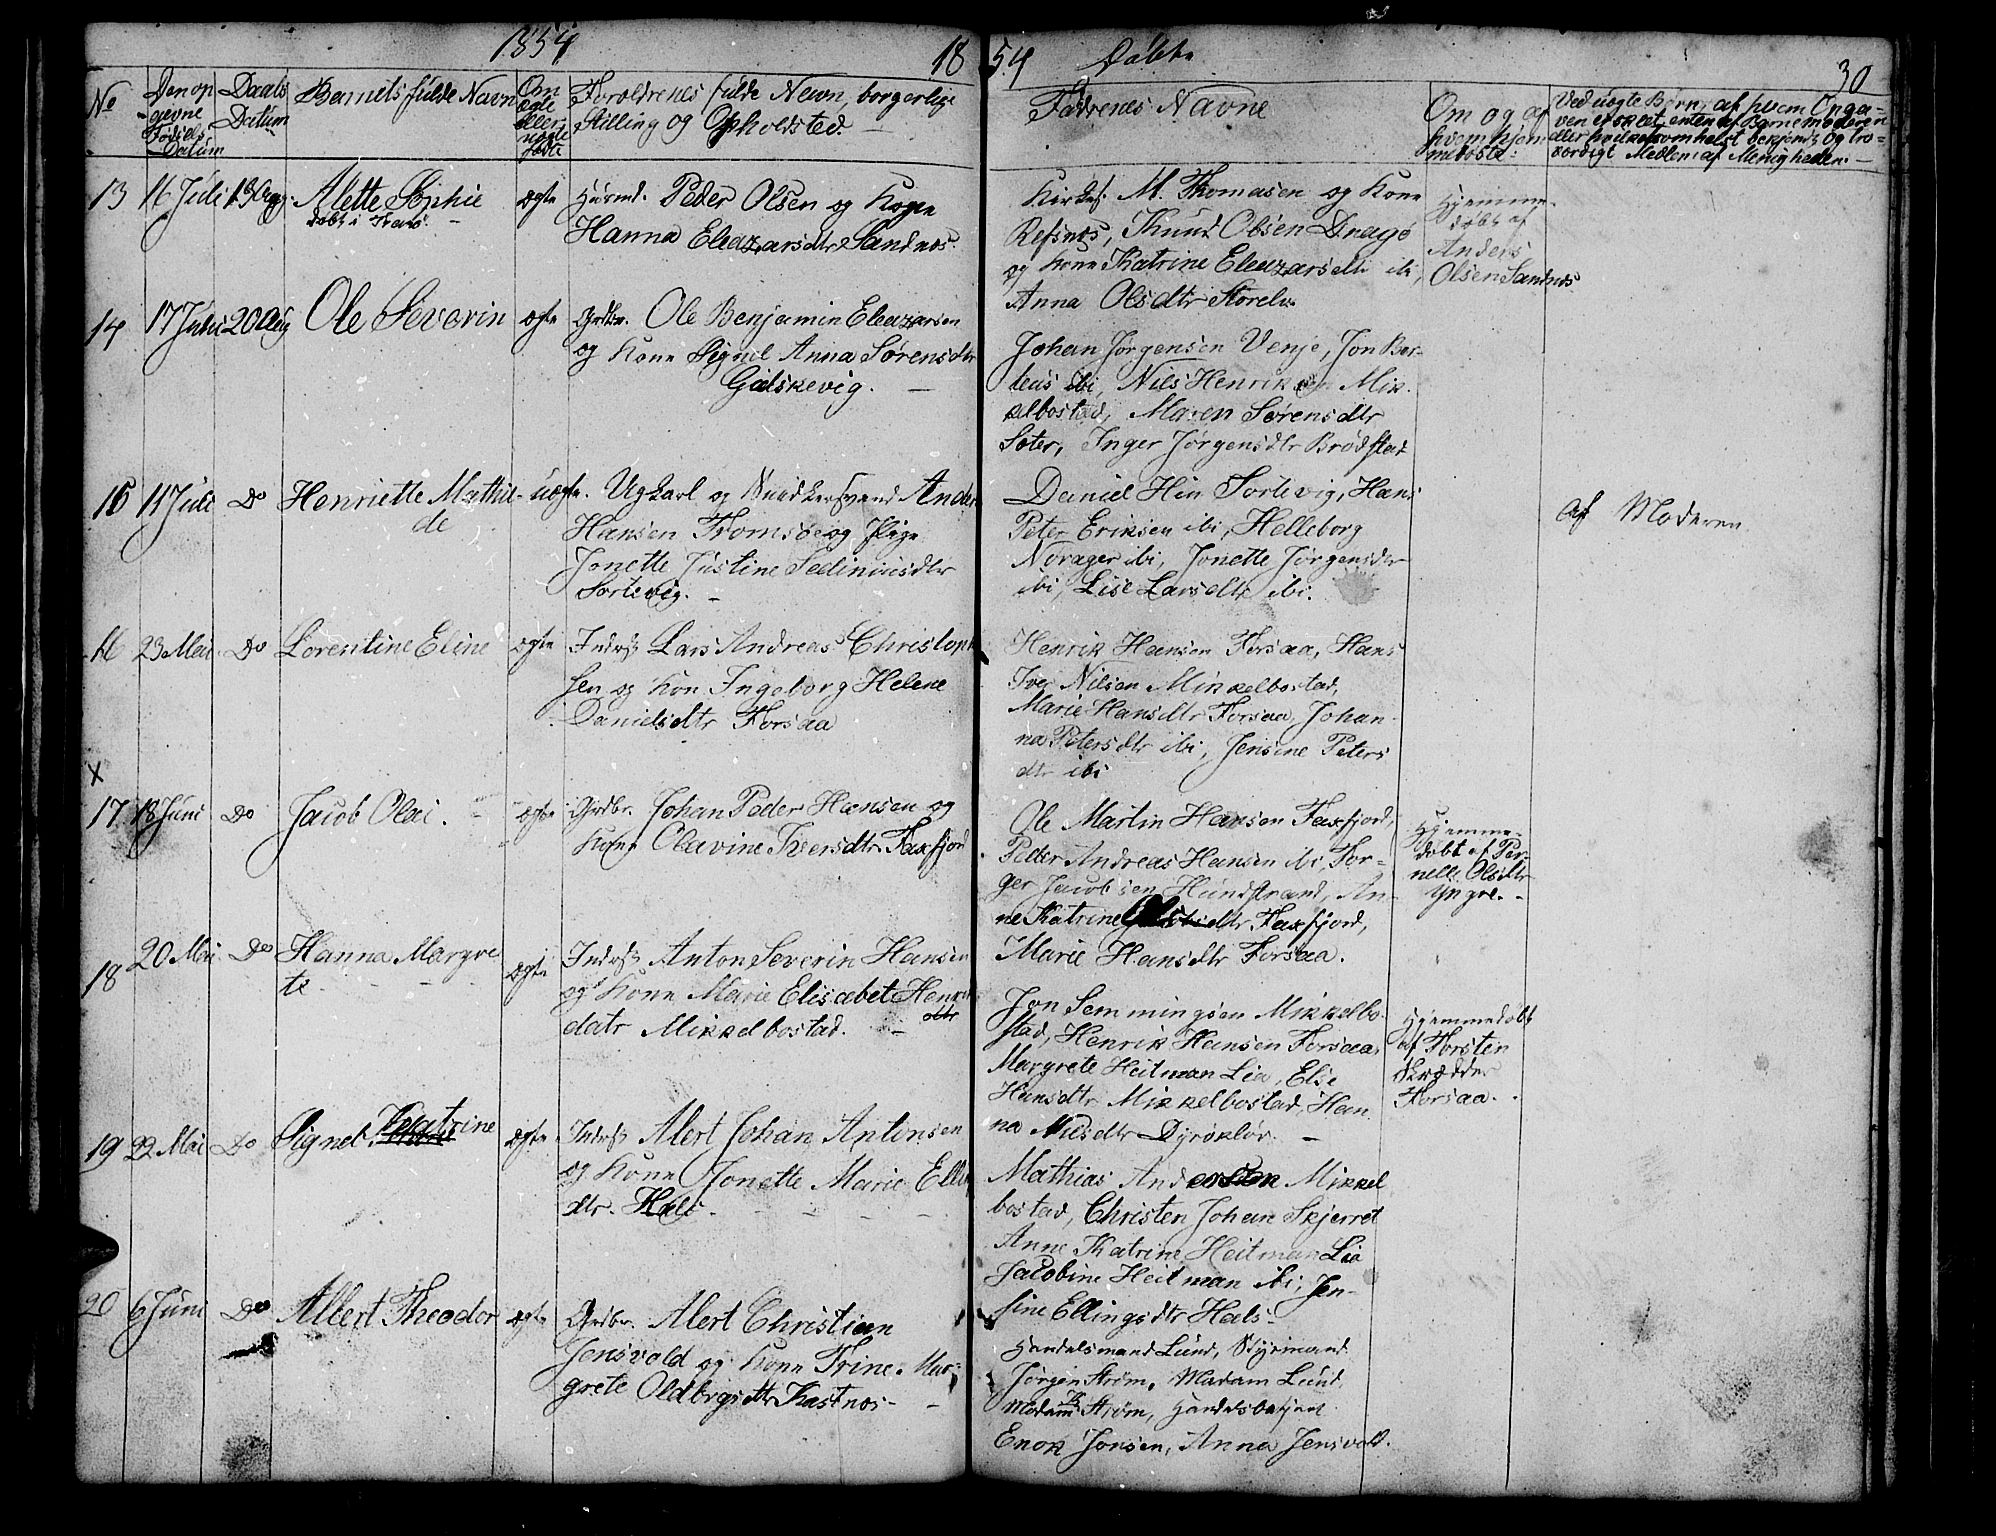 1854
18
54 Døbte
30
No
Den op
givne
Fødsels-
Datum
Daabs
Datum
Barnets fulde Navn
Om
ægte
eller
uægte
født
Forældrenes fulde Navn, borgerlige
Stilling og Opholdsted
Faddrenes Navne
Om og af
hvem hjem
medøbt
Ved uægte Børn, af hvem Opga-
ven er skeet, enten af Barnemoderen
eller hvilketsomhelst bekjendt og tro-
værdigt Medlem af Menigheden
13 16 Juli 13 Aug. Alette Sophie
døbt i Tranø.
ægte Husmd. Peder Olsen og Kone
Hanna Eleazarsdtr Sandnes.
Kirkes. M. Thomasen og Kone
Refsnæs, Knud Olsen Dragø
og Kone Katrine Eleazarsdtr ibi,
Anna Olsdtr Storelv
Hjemme-
døbt af
Anders
Olsen Sandnes
14 17 Juli 20 Aug Ole Severin ægte Grdbr. Ole Benjamin Eleazarsen
og Kone Signel Anna Sørensdtr
Galskevig.
Johan Jørgensen Venje, Jon Ber-
teus ibi, Nils Henriksen Mik-
kelbostad, Maren Sørensdtr
Sæter, Inger Jørgensdtr Brødstad
15 11 Juli Do Henriette Mathil-
de
uægte. Ugkarl og Snedkersvend Anders
Hansen Tromsøe og Pige
Jonette Justine Sedimiusdtr
Sortevig.
Daniel Hin Sortevig, Hans
Peter Eriksen ibi, Helleborg
Norager ibi, Jonette Jørgensdtr
ibi, Lise Larsdtr ibi.
af Moderen
16 23 Mai Do Lorentine Eline ægte Inders Lars Andreas Christoph
sen og Kon Ingeborg Helene
Danielsdtr Forsaa
Henrik Hansen Forsaa, Hans
Iver Nilsen Mikkelbostad,
Marie Hansdtr Forsaa, Johan-
na Petersdtr ibi, Jensine Peters
dtr ibi
x
17 18 Juni Do Jacob Olai. ægte Grdbr. Johan Peder Hansen og
Kone Olavine Iversdtr Faxfjord
Ole Martin Hansen Faxfjord,
Peder Andreas Hansen ibi, Tor-
ger Jacobsen Hundstrand, An-
ne Katrine Olsdtr Faxfjord,
Marie Hansdtr Forsaa.
Hjemme-
døbt af Per-
nelle Olsdtr
Yngre.
18 20 Mai Do Hanna Margre
te
ægte Inders Anton Severin Hansen
og Kone Marie Elisabet Henrik
datr Mikkelbostad.
Jon Semmingsen Mikkelbo-
stad, Henrik Hansen Forsaa,
Margrete Heitman Lia, Else
Hansdtr Mikkelbostad, Han-
na Nilsdtr Dyrøkløv.
Hjemmedøbt
af Torsten
Skrædder
Forsaa.
19 22 Mai Do Signel Katrine ægte Inders Alert Johan Antonsen
og Kone Jonette Marie Elling
dtr. Hals
Mathias Andersen Mikkel
bostad, Christen Johan Skjerret
Anne Katrine Heitman Lia
Jacobine Heitman ibi, Jen-
sine Ellingsdtr Hals
20 6 Juni Do Albert Theodor ægte Grdbr. Alert Christian
Jensvold og Kone Trine Mar-
grete Oldbrgsdtr Kastnæs
Handelsmand Lund, Styrmand
Jørgen Strøm, Madam Lund,
Madam B Strøm, Handelsbetjent
Enok Jonsen, Anna Jensvold.